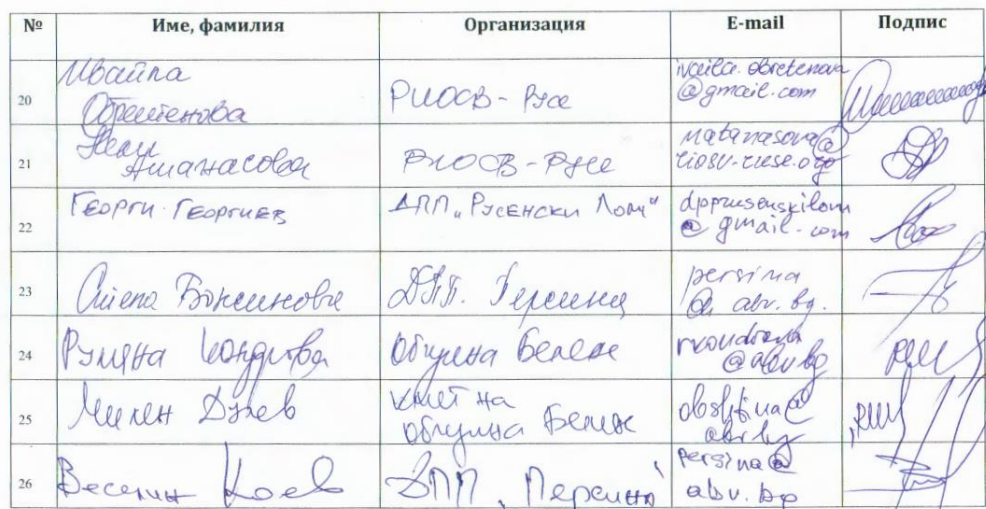 № Име, фамилия Организация E-mail Подпис
20 Ивайла Обретенова РИОСВ - Русе ivaila.obretenova @gmail.com
21 Нели Атанасова РИОСВ - Русе natanasova@ riosv-ruse.org
22 Георги Георгиев ДПП „Русенски Лом“ dpprusenskilom @ gmail.com
23 Стела Божинова ДПП. Персина persina @ abv.bg.
24 Румяна Кондрова Община Белене @abv.bg
25 Милен Дулев Кмет на община Белене obshtina@ abv.bg
26 Веселин Коев ДПП „Персина“ persina@ abv.bg